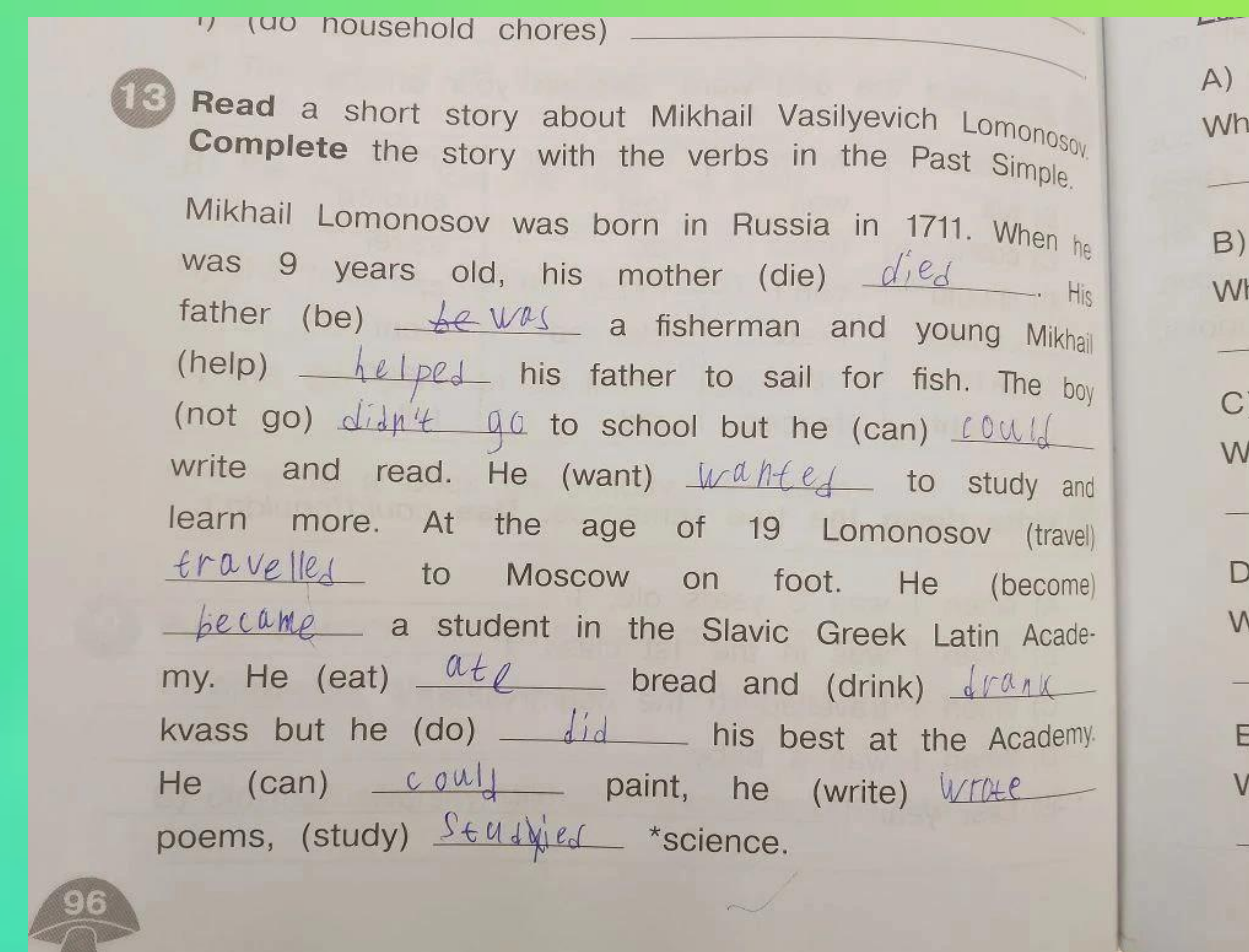 (do household chores)
13 Read a short story about Mikhail Vasilyevich Lomonosov.
Complete the story with the verbs in the Past Simple.
Mikhail Lomonosov was born in Russia in 1711. When he
was 9 years old, his mother (die) died. His
father (be) be was a fisherman and young Mikhail
(help) helped his father to sail for fish. The boy
(not go) didn't go to school but he (can) could
write and read. He (want) wanted to study and
learn more. At the age of 19 Lomonosov (travel)
travelled to Moscow on foot. He (become)
became a student in the Slavic Greek Latin Acade-
my. He (eat) ate bread and (drink) drank
kvass but he (do) did his best at the Academy.
He (can) could paint, he (write) wrote
poems, (study) studied *science.
96
A)
B)